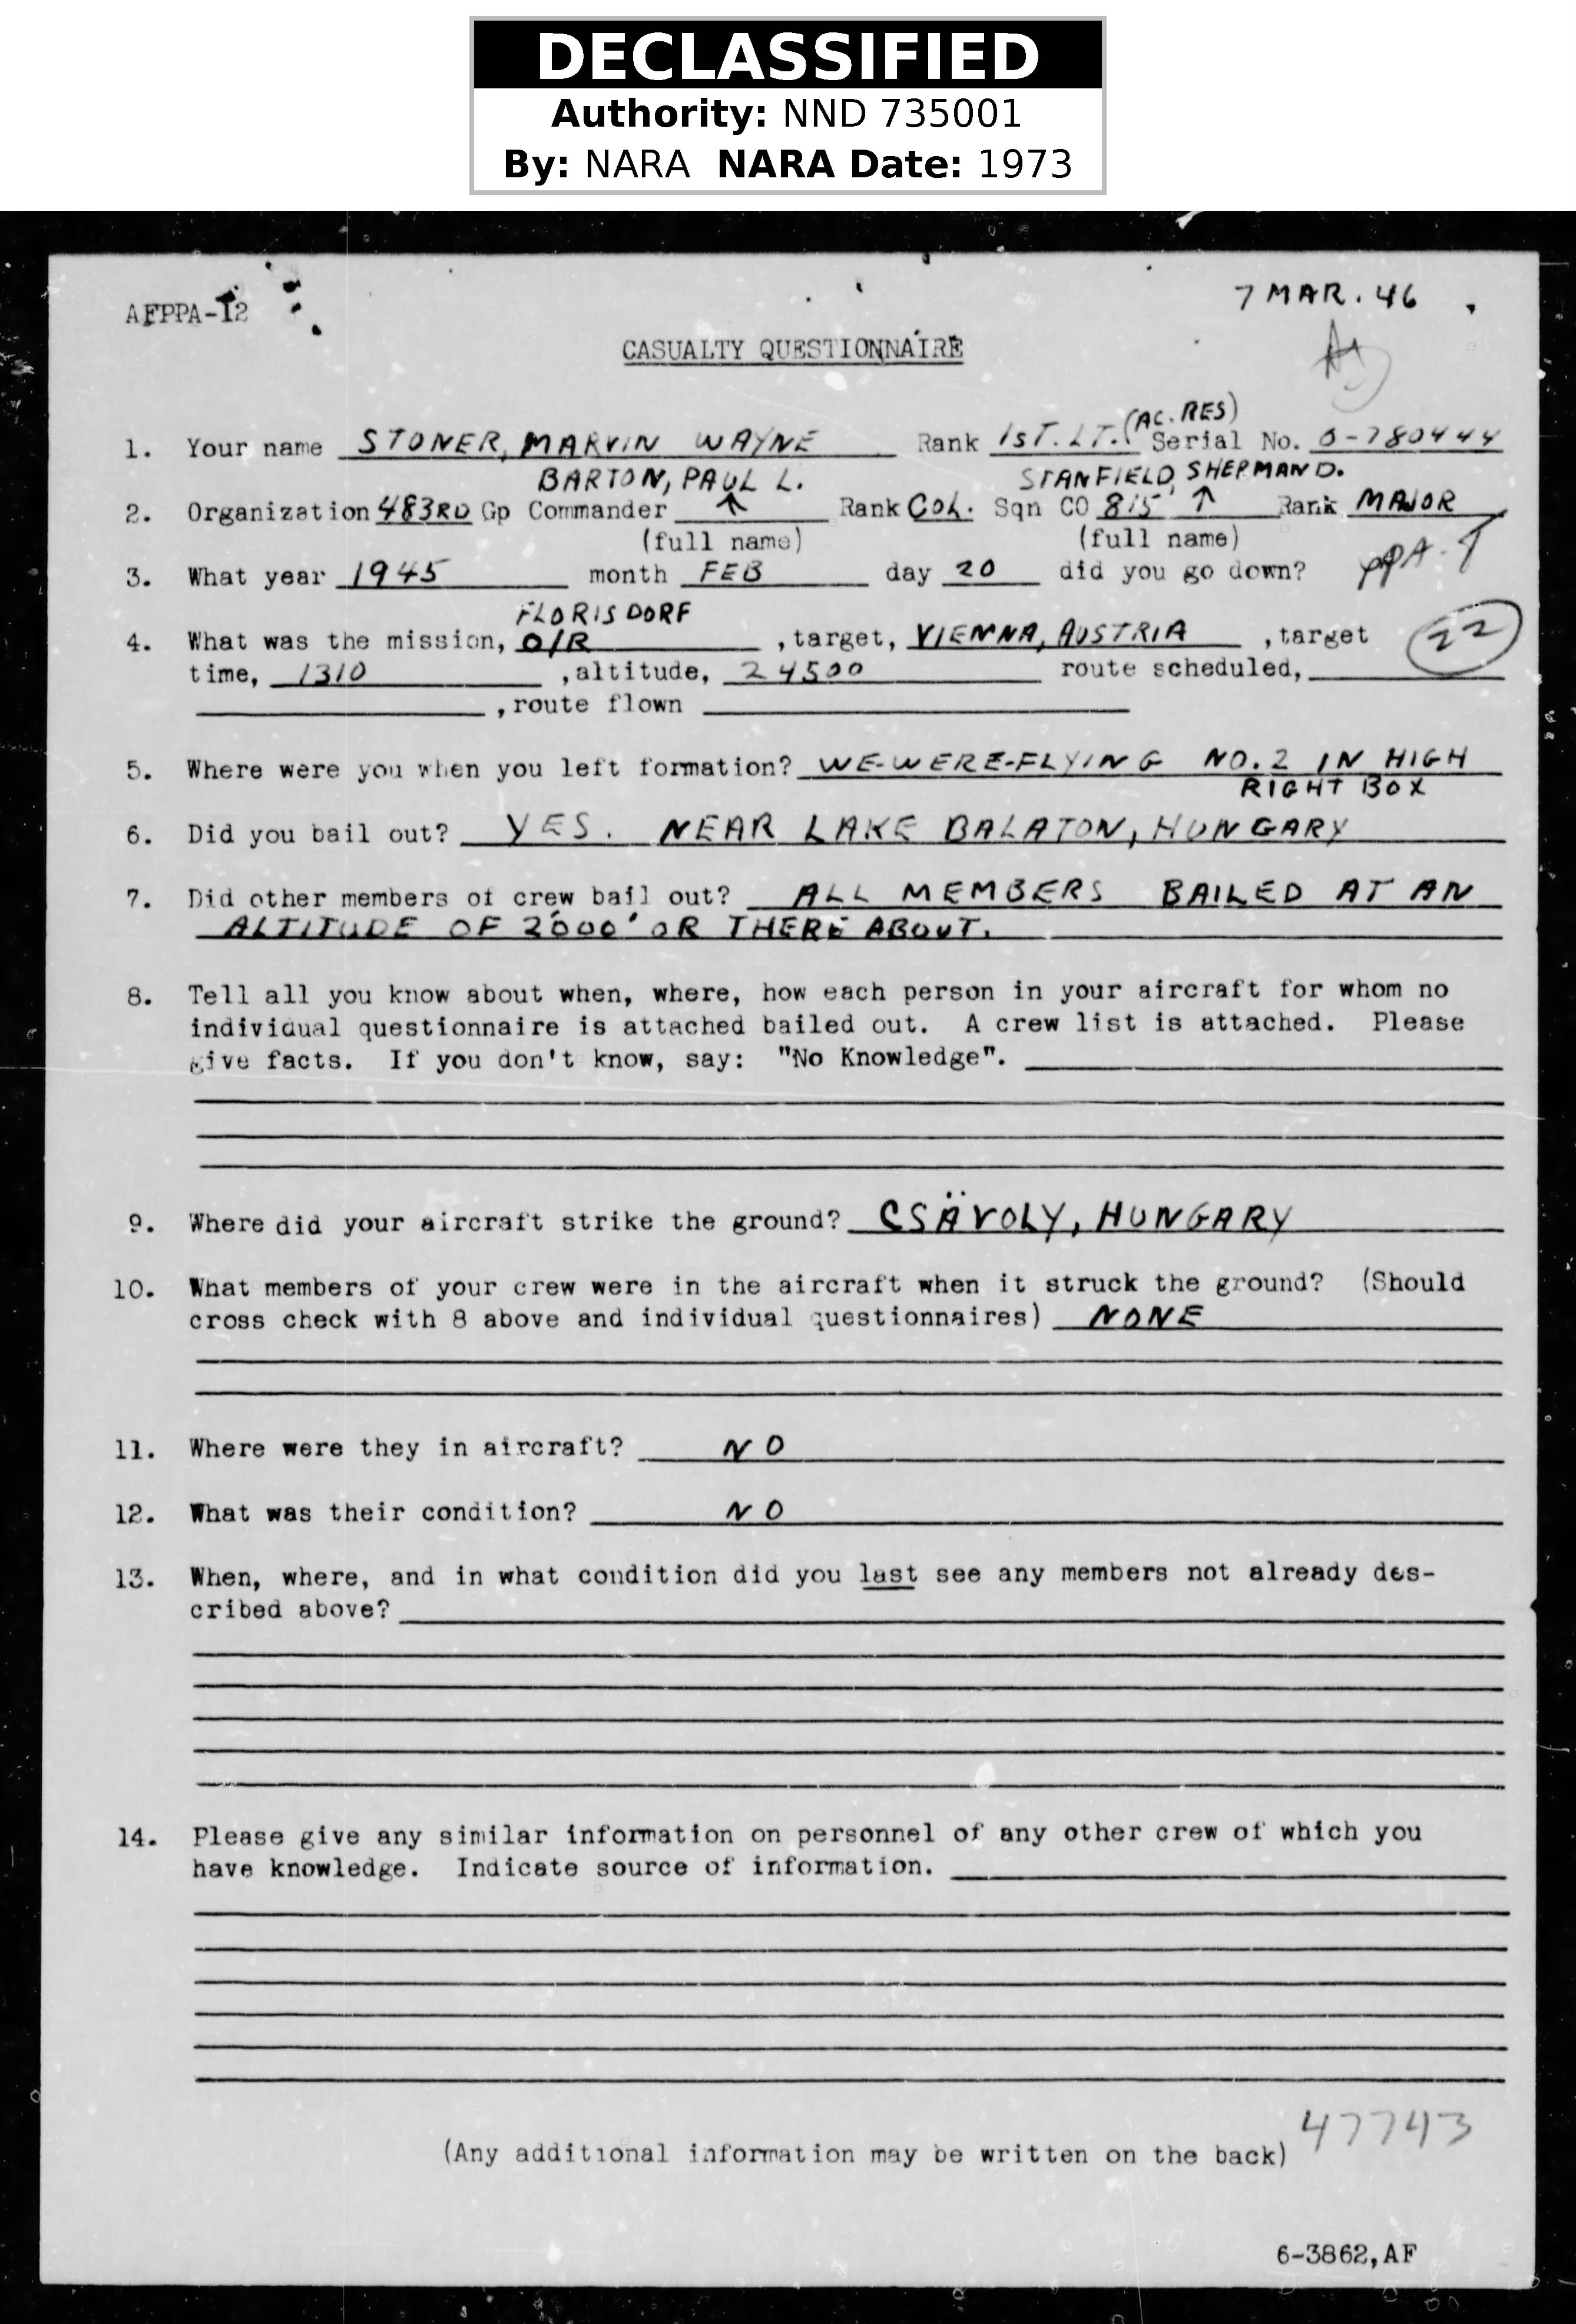 DECLASSIFIED
Authority: NND 735001
By: NARA NARA Date: 1973
7 MAR. 46
AFPPA-12
CASUALTY QUESTIONNAIRE
(AC. RES)
1. Your name STONER, MARVIN WAYNE Rank 1ST. LT. Serial No. O-780444
BARTON, PAUL L. STANFIELD, SHERMAN D.
2. Organization 483RD Gp Commander ↑ Rank COL. Sqn CO 815 ↑ Rank MAJOR
(full name) (full name)
3. What year 1945 month FEB day 20 did you go down?
FLORISDORF
4. What was the mission, O/R , target, VIENNA, AUSTRIA , target
22
time, 1310 , altitude, 24500 route scheduled,
, route flown
5. Where were you when you left formation? WE-WERE-FLYING NO. 2 IN HIGH
RIGHT BOX
6. Did you bail out? YES. NEAR LAKE BALATON, HUNGARY
7. Did other members of crew bail out? ALL MEMBERS BAILED AT AN
ALTITUDE OF 2000' OR THERE ABOUT.
8. Tell all you know about when, where, how each person in your aircraft for whom no
individual questionnaire is attached bailed out. A crew list is attached. Please
give facts. If you don't know, say: "No Knowledge".
9. Where did your aircraft strike the ground? CSÄVOLY, HUNGARY
10. What members of your crew were in the aircraft when it struck the ground? (Should
cross check with 8 above and individual questionnaires) NONE
11. Where were they in aircraft? NO
12. What was their condition? NO
13. When, where, and in what condition did you last see any members not already des-
cribed above?
14. Please give any similar information on personnel of any other crew of which you
have knowledge. Indicate source of information.
47743
(Any additional information may be written on the back)
6-3862, AF